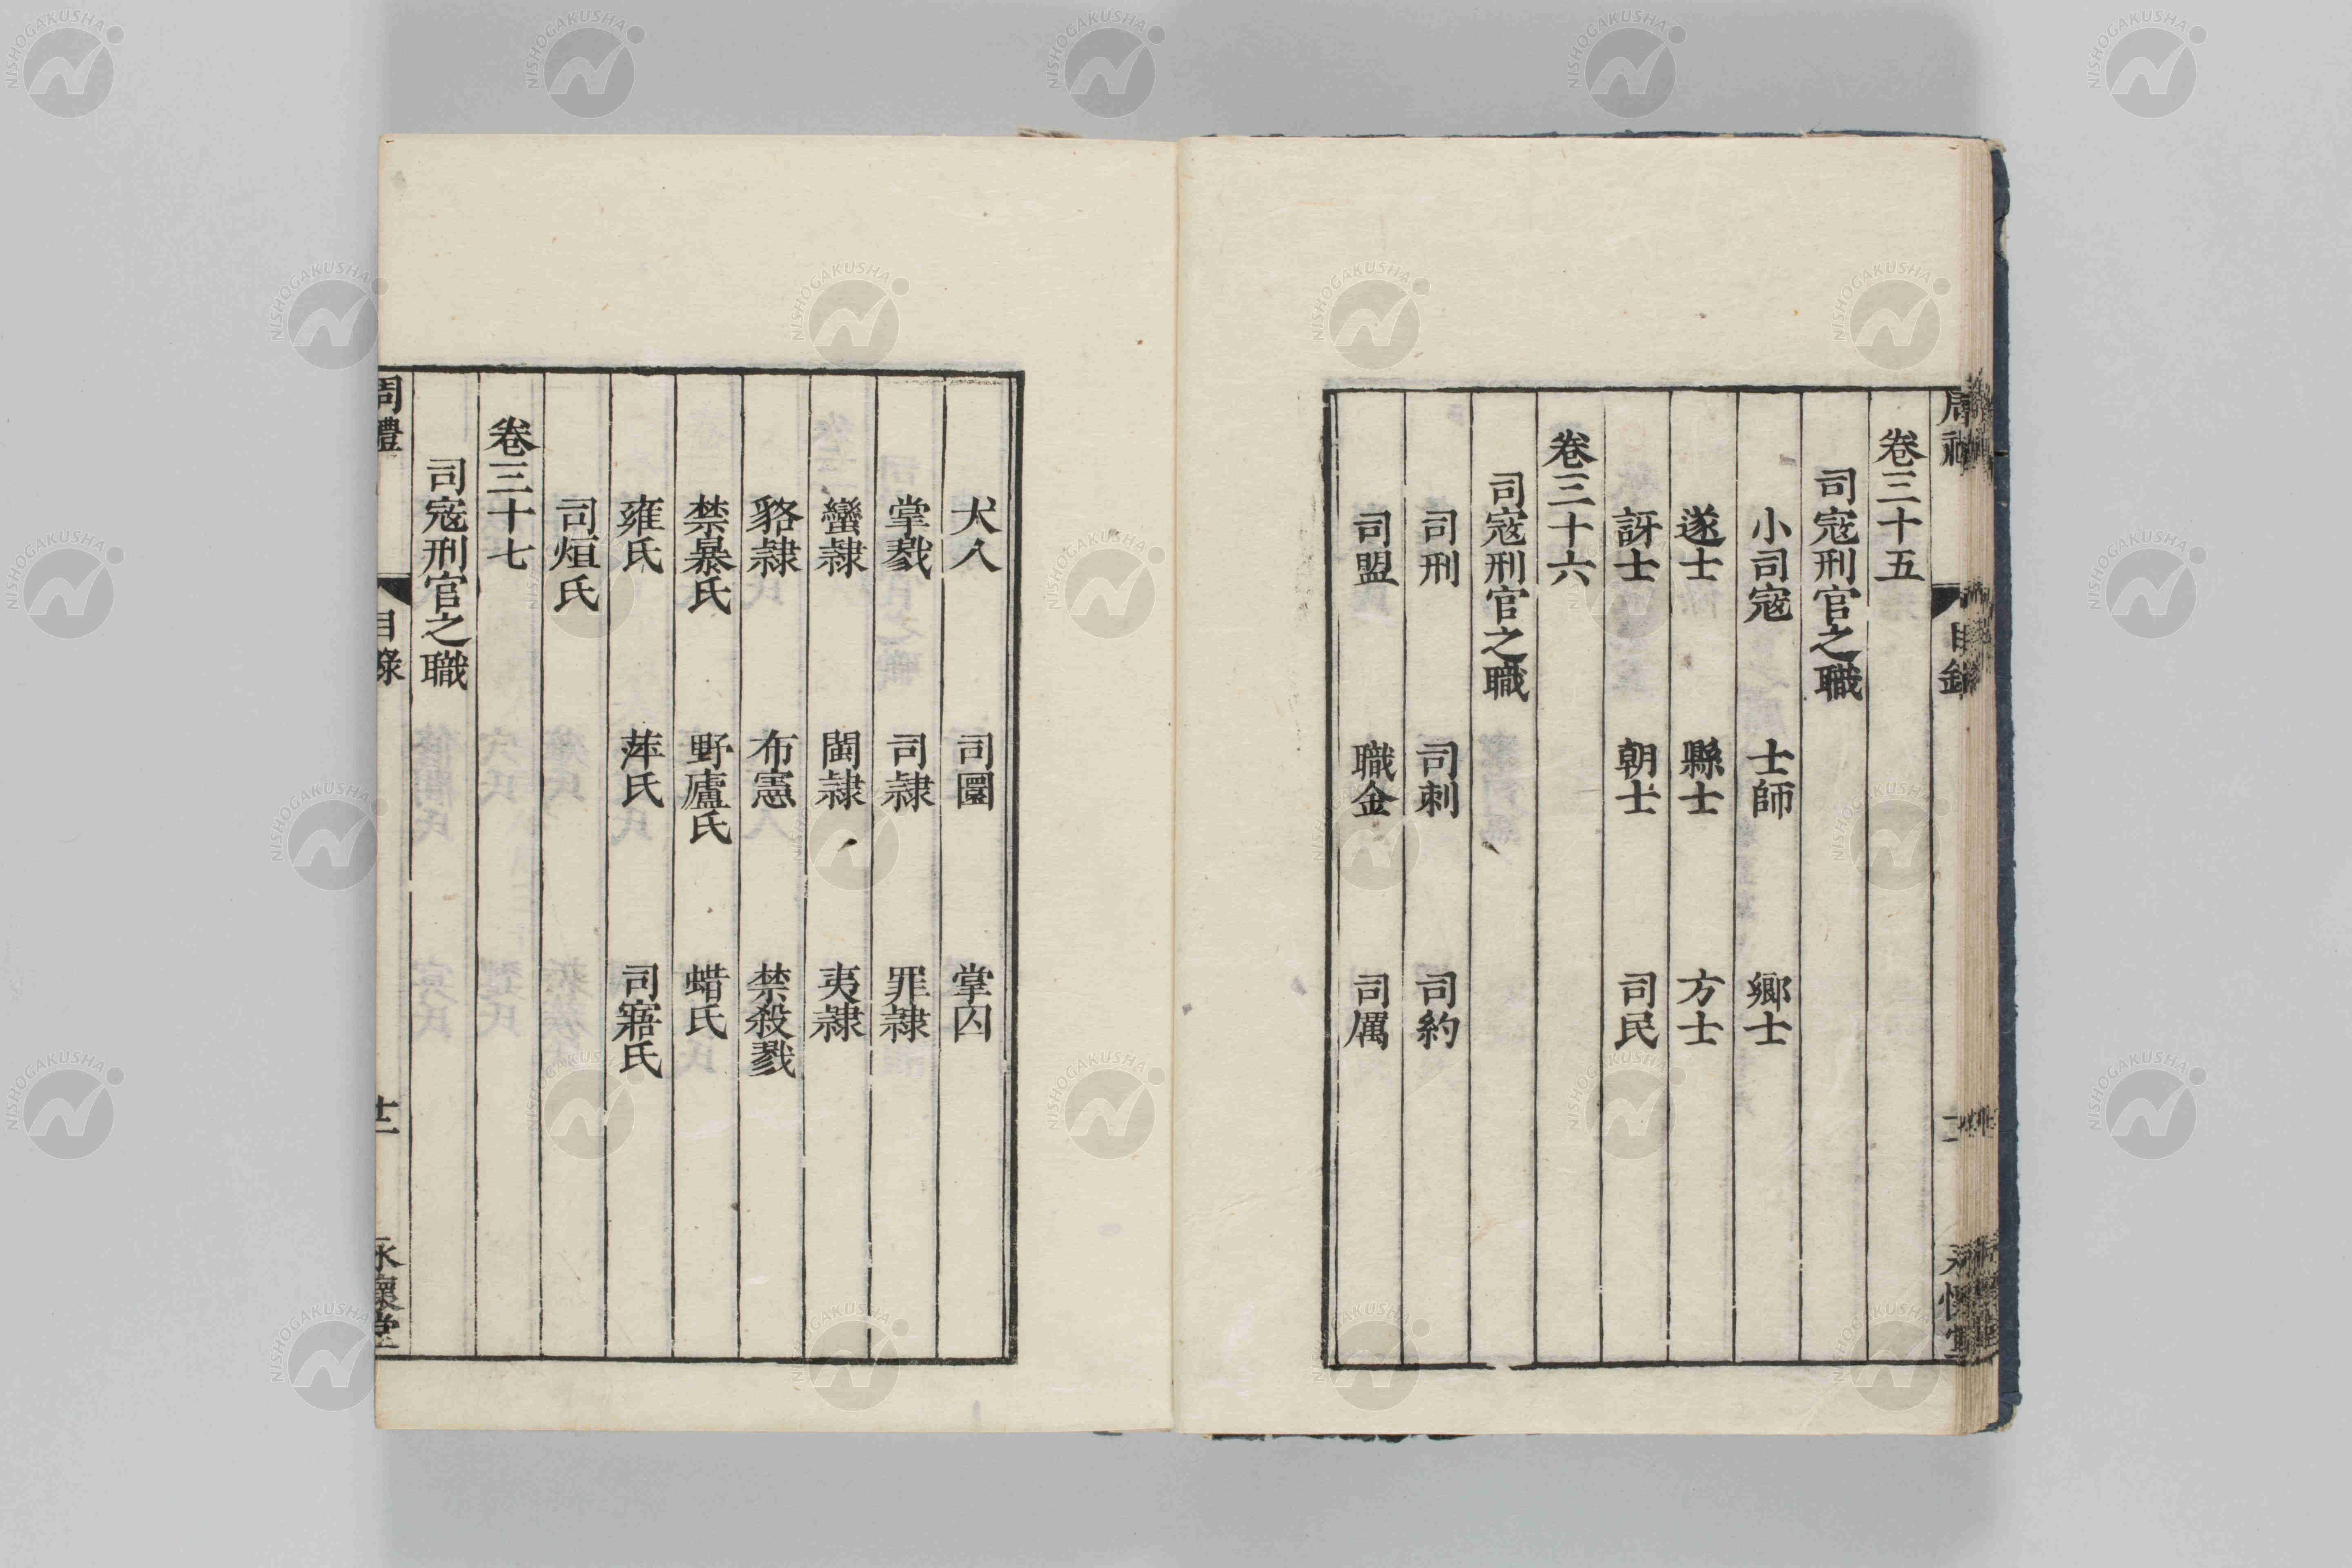 卷三十五
司寇刑官之職
小司寇 士師 鄉士
遂士 縣士 方士
訝士 朝士 司民
卷三十六
司寇刑官之職
司刑 司刺 司約
司盟 職金 司厲
犬人 司圜 掌囚
掌戮 司隷 罪隷
蠻隷 閩隷 夷隷
貉隷 布憲 禁殺戮
禁暴氏 野廬氏 蜡氏
雍氏 萍氏 司寤氏
司烜氏
卷三十七
司寇刑官之職
周禮 目錄 十二 永懷堂
NISHOGAKUSHA